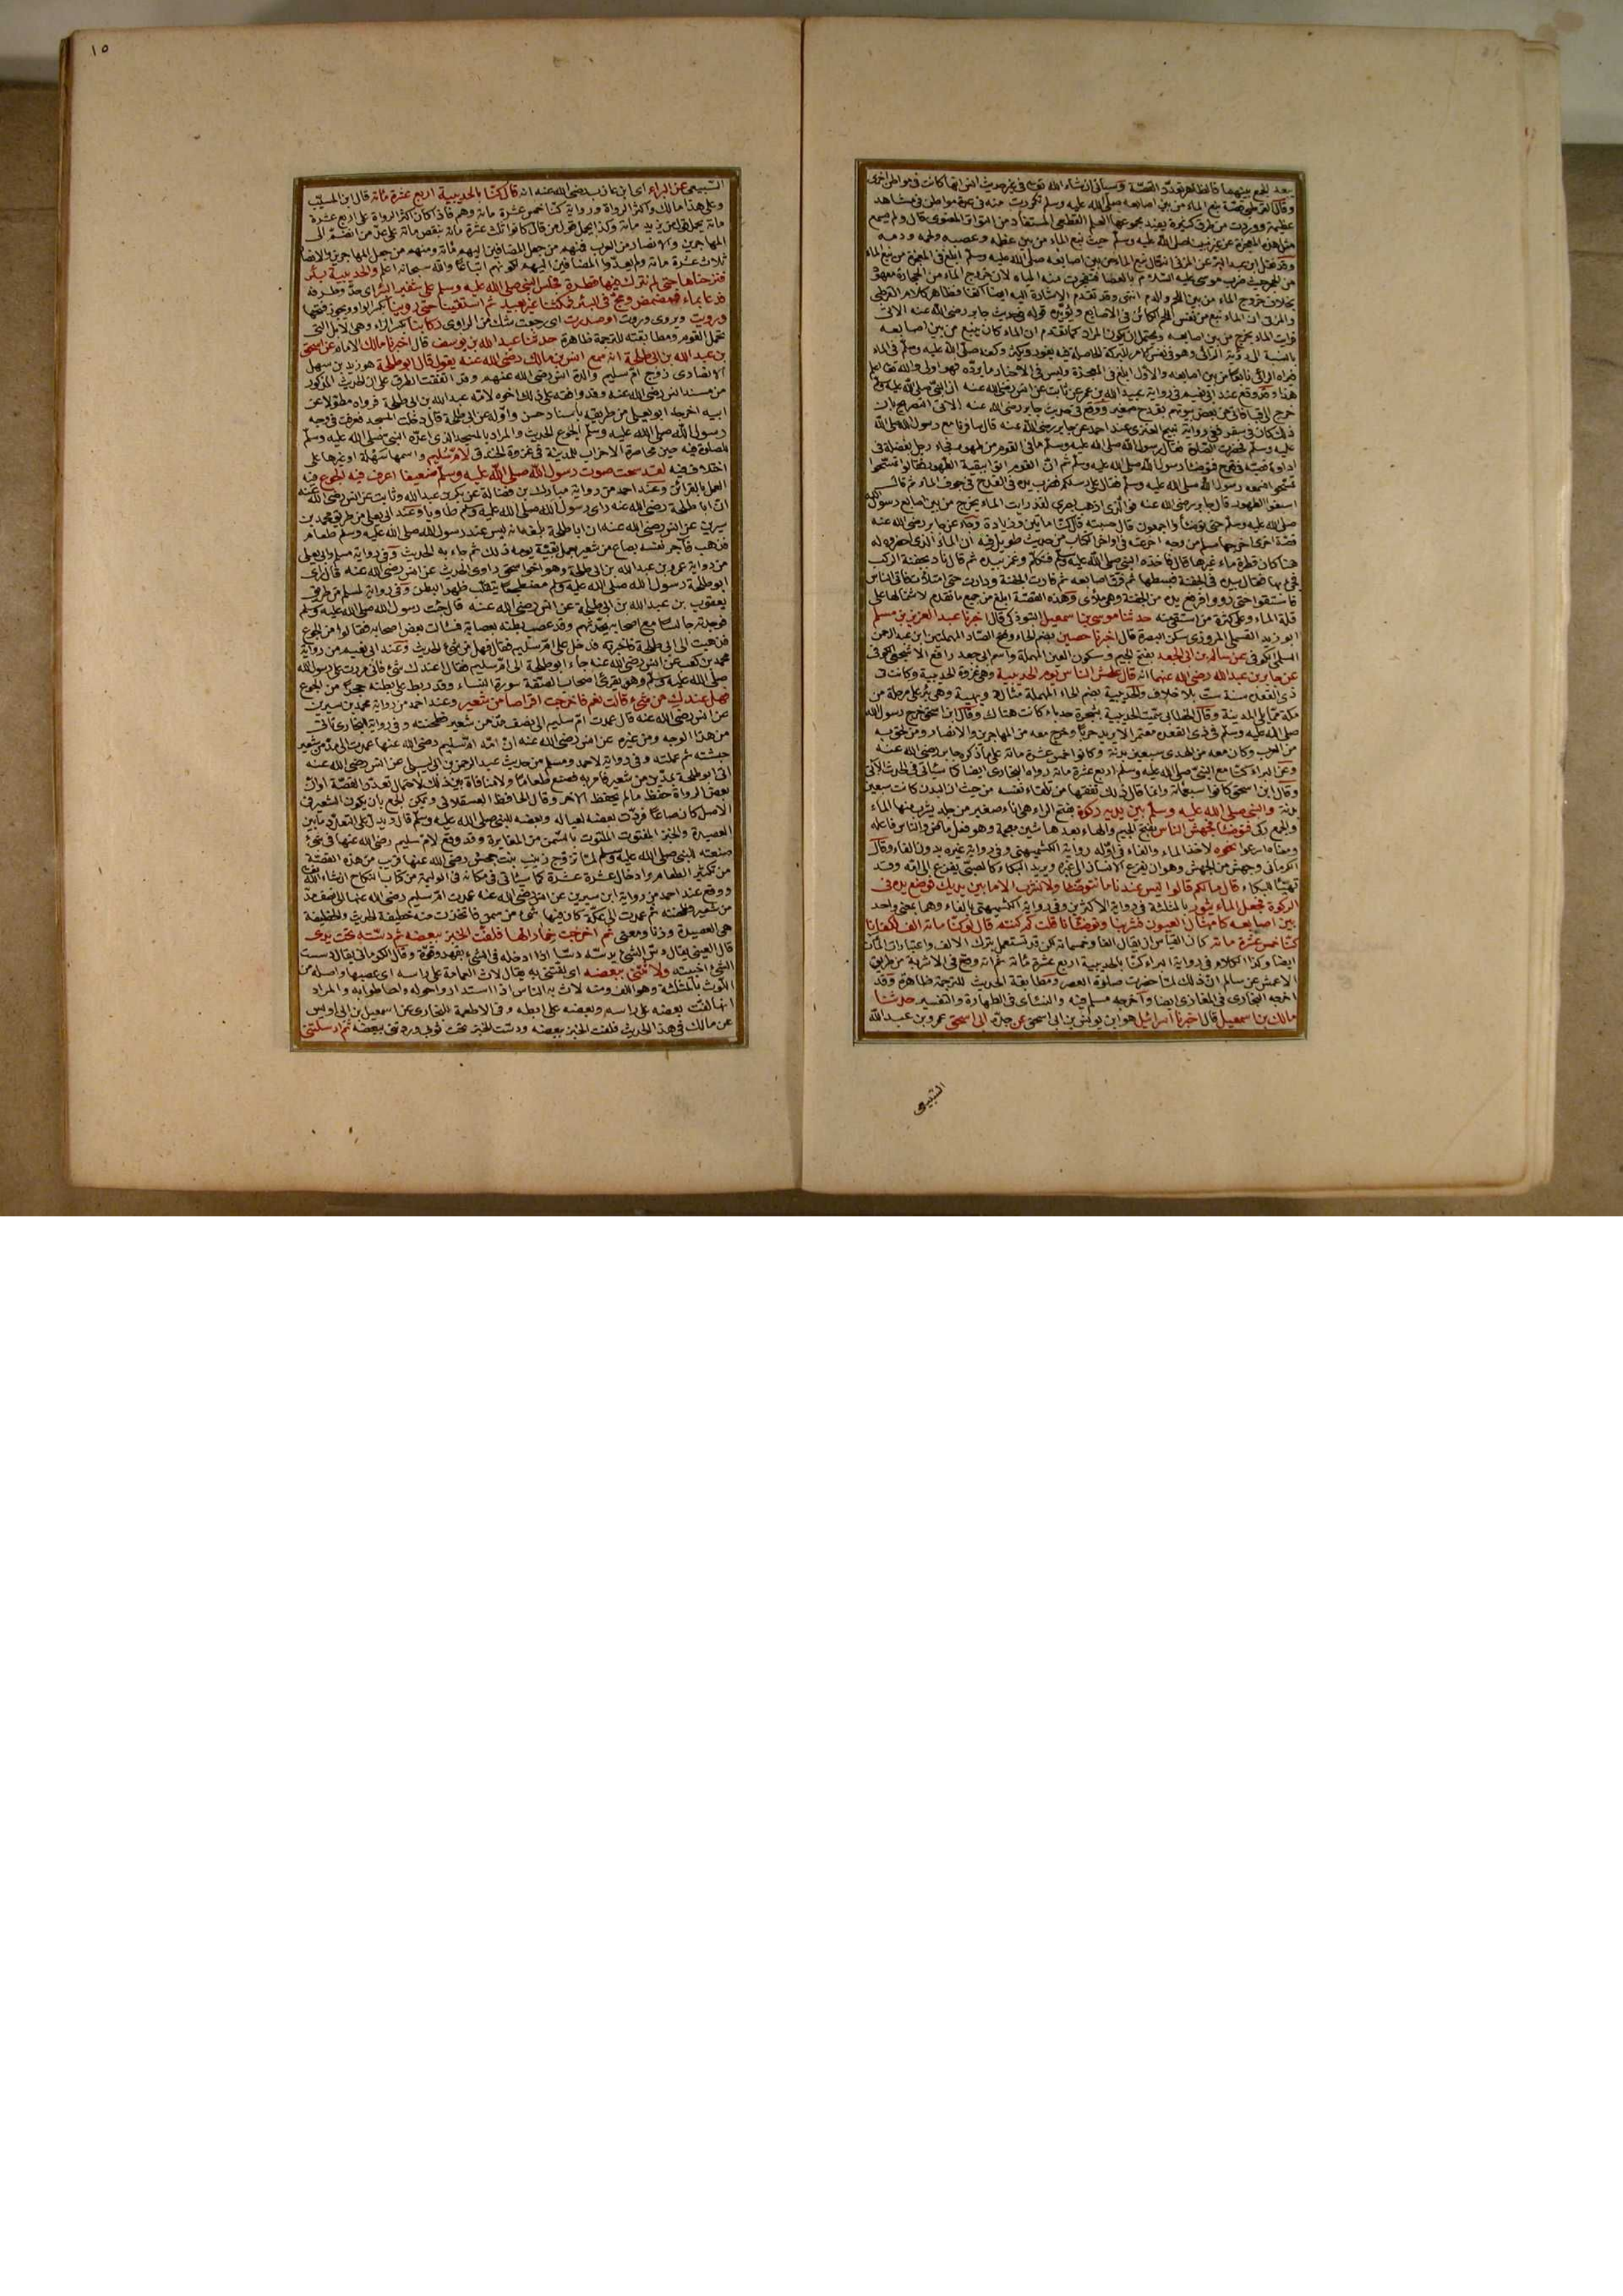 بعد الجمع بينهما فالظاهر تعدد القصة وسيأتي ان شاء الله تعالى في غير حديث انس انها كانت في مواطن اخرى
وقال القرطبي قصة نبع الماء من بين اصابعه صلى الله عليه وسلم تكررت منه في عدة مواطن في مشاهد
عظيمة ووردت من طرق كثيرة يفيد مجموعها العلم القطعي المستفاد من التواتر المعنوي قال ولم يسمع
مثل هذه المعجزة عن غير نبينا صلى الله عليه وسلم حيث نبع الماء من بين عظمه وعصبه ولحمه ودمه
وقد نقل ابن عبد البر عن المزني انه قال نبع الماء من بين اصابعه صلى الله عليه وسلم ابلغ في المعجزة من نبع الماء
من الحجر حيث ضرب موسى عليه السلام بالعصا فتفجرت منه المياه لان خروج الماء من الحجارة معهود
بخلاف خروج الماء من بين اللحم والدم انتهى وقد تقدم الاشارة اليه ايضا آنفا وظاهر كلام القرطبي
والمزني ان الماء نبع من نفس اللحم الكائن في الاصابع ويؤيده قوله في حديث جابر رضي الله عنه الآتي
فرأيت الماء يخرج من بين اصابعه ويحتمل ان يكون المراد كما تقدم ان الماء كان ينبع من بين اصابعه
بالنسبة الى رؤية الرائي وهو في نفس الامر للبركة الحاصلة فيه يفور ويكثر وكفه صلى الله عليه وسلم في الماء
فيراه الرائي نابعا من بين اصابعه والاول ابلغ في المعجزة وليس في الاخبار ما يرده فهو اولى والله تعالى اعلم
هذا وقد وقع عند ابي نعيم في رواية عبيد الله بن عمر عن ثابت عن انس رضي الله عنه ان النبي صلى الله عليه وسلم
خرج الى قبا فاتي من بعض بيوتهم بقدح صغير ووقع في حديث جابر رضي الله عنه الآتي التصريح بان
ذلك كان في سفر ففي رواية نبيح العنزي عند احمد عن جابر رضي الله عنه قال سافرنا مع رسول الله صلى الله
عليه وسلم فحضرت الصلاة فقال رسول الله صلى الله عليه وسلم ما في القوم من طهور فجاء رجل بفضلة في
اداوة فصبه في قدح فتوضأ رسول الله صلى الله عليه وسلم ثم ان القوم اتوا ببقية الطهور فقالوا تمسحوا
تمسحوا فسمعهم رسول الله صلى الله عليه وسلم فقال على رسلكم فضرب بيده في القدح في جوف الماء ثم قال
اسبغوا الطهور قال جابر رضي الله عنه فوالذي اذهب بصري لقد رايت الماء يخرج من بين اصابع رسول الله
صلى الله عليه وسلم حتى توضأوا اجمعون قال حسبته قال كنا مائتين وزيادة وجاء عن جابر رضي الله عنه
قصة اخرى اخرجها مسلم من وجه آخر عنه في اواخر الكتاب من حديث طويل فيه ان الماء الذي احضروه له
هنا كان قطرة ماء غيرها قال فاخذه النبي صلى الله عليه وسلم فتكلم وغمز بيده ثم قال ناد بجفنة الركب
فجيء بها فقال بيده في الجفنة فبسطها ثم فرق اصابعه ثم فارت الجفنة ودارت حتى امتلأت فاتى الناس
فاستقوا حتى رووا فرفع يده من الجفنة وهي ملأى وهذه القصة ابلغ من جميع ما تقدم لاشتمالها على
قلة الماء وعلى كثرة من استقى منه حدثنا موسى بن اسمعيل التبوذكي قال اخبرنا عبد العزيز بن مسلم
ابو زيد القسملي المروزي سكن البصرة قال اخبرنا حصين بضم الحاء وفتح الصاد المهملتين ابن عبد الرحمن
السلمي الكوفي عن سالم بن ابي الجعد بفتح الجيم وسكون العين المهملة واسم ابي جعد رافع الاشجعي الكوفي
عن جابر بن عبد الله رضي الله عنهما انه قال عطش الناس يوم الحديبية وهي غزوة الحديبية وكانت في
ذي القعدة سنة ست بلا خلاف والحديبية بضم الحاء المهملة مثال دويهية وهي بئر على مرحلة من
مكة مما يلي المدينة وقال الخطابي سميت الحديبية بشجرة حدباء كانت هناك وقال ابن اسحق خرج رسول الله
صلى الله عليه وسلم في ذي القعدة معتمرا لا يريد حربا وخرج معه من المهاجرين والانصار ومن لحق به
من العرب وكان معه من الهدي سبعين بدنة وكانوا خمس عشرة مائة على ما ذكره جابر رضي الله عنه
وعن البراء كنا مع النبي صلى الله عليه وسلم اربع عشرة مائة رواه البخاري ايضا كما سيأتي في الحديث الآتي
وقال ابن اسحق كانوا سبعمائة وانما قال ذلك تفقها من تلقاء نفسه من حيث ان البدن كانت سبعين
بدنة والنبي صلى الله عليه وسلم بين يديه ركوة بفتح الراء هي اناء صغير من جلد يشرب منها الماء
والجمع ركى فتوضأ فجهش الناس بفتح الجيم والهاء بعدها شين معجمة وهو فعل ماض والناس فاعله
ومعناه اسرعوا نحوه لاخذ الماء والفاء في اوله رواية الكشميهني وفي رواية غيره بدون الفاء وقال
الكرماني وجهش من الجهش وهو ان يفزع الانسان الى غيره ويريد البكاء كالصبي يفزع الى امه وقد
تهيأ للبكاء قال ما لكم قالوا ليس عندنا ما نتوضأ ولا نشرب الا ما بين يديك فوضع يده في
الركوة فجعل الماء يثور بالمثلثة في رواية الاكثرين وفي رواية الكشميهني بالفاء وهما بمعنى واحد
بين اصابعه كامثال العيون فشربنا وتوضأنا قلت كم كنتم قال لو كنا مائة الف لكفانا
كنا خمس عشرة مائة كان القياس ان يقال الفا وخمسمائة لكن قد تستعمل بترك الالف واعتبارات المآت
ايضا وكذا الكلام في رواية البراء كنا بالحديبية اربع عشرة مائة ثم انه وقع في الاشربة من طريق
الاعمش عن سالم ان ذلك لما حضرت صلوة العصر ومطابقة الحديث للترجمة ظاهرة وقد
اخرجه البخاري في المغازي ايضا واخرجه مسلم فيه والنسائي في الطهارة والتفسير حدثنا
مالك بن اسمعيل قال اخبرنا اسرائيل هو ابن يونس بن ابي اسحق عن جده ابي اسحق عمرو بن عبد الله
السبيعي
١٥
السبيعي عن البراء اي ابن عازب رضي الله عنه انه قال كنا بالحديبية اربع عشرة مائة قال ابن المسيب
وعلى هذا مالك واكثر الرواة ورواية كنا خمس عشرة مائة وهم فاذ كان اكثر الرواة على اربع عشرة
مائة يحمل قول من يزيد مائة وكذا يحمل قول من قال كانوا ثلث عشرة مائة بنقص مائة على عد من انضم الى
المهاجرين والانصار من العرب فمنهم من جعل المضافين اليهم مائة ومنهم من جعل المهاجرين والانصار
ثلاث عشرة مائة ولم يعدوا المضافين اليهم لكونهم اتباعا والله سبحانه اعلم والحديبية بئر
فنزحناها حتى لم نترك فيها قطرة فجلس النبي صلى الله عليه وسلم على شفير البئر اي حده وطرفه
فدعا بماء فمضمض ومج في البئر فمكثنا غير بعيد ثم استقينا حتى روينا بكسر الواو ويجوز فتحها
ورويت ويروى وروت او صدرت اي رجعت شك من الراوي ركابنا بكسر الراء وهي الابل التي
تحمل القوم ومطابقته للترجمة ظاهرة حدثنا عبد الله بن يوسف قال اخبرنا مالك الامام عن اسحق
بن عبد الله بن ابي طلحة انه سمع انس بن مالك رضي الله عنه يقول قال ابو طلحة هو زيد بن سهل
الانصاري زوج ام سليم والدة انس رضي الله عنهم وقد اتفقت الطرق على ان الحديث المذكور
من مسند انس رضي الله عنه وقد وافقه على ذلك اخوه لامه عبد الله بن ابي طلحة فرواه مطولا عن
ابيه اخرجه ابو يعلى من طريقه باسناد حسن واوله عن ابي طلحة قال دخلت المسجد فعرفت في وجه
رسول الله صلى الله عليه وسلم الجوع الحديث والمراد بالمسجد الذي اعده النبي صلى الله عليه وسلم
للصلوة فيه حين محاصرة الاحزاب للمدينة في غزوة الخندق لام سليم واسمها سهلة او غيرها على
اختلاف فيه لقد سمعت صوت رسول الله صلى الله عليه وسلم ضعيفا اعرف فيه الجوع فيه
العمل بالقرائن وعند احمد من رواية مبارك بن فضالة عن بكر بن عبد الله وثابت عن انس رضي الله عنه
ان ابا طلحة رضي الله عنه راى رسول الله صلى الله عليه وسلم طاويا وعند ابي يعلى من طريق محمد بن
سيرين عن انس رضي الله عنه ان ابا طلحة بلغه انه ليس عند رسول الله صلى الله عليه وسلم طعام
فذهب فآجر نفسه بصاع من شعير بعمل بقية يومه ذلك ثم جاء به الحديث وفي رواية مسلم وابي يعلى
من رواية عمرو بن عبد الله بن ابي طلحة وهو اخو اسحق راوي الحديث عن انس رضي الله عنه قال رأى
ابو طلحة رسول الله صلى الله عليه وسلم مضطجعا يتقلب ظهرا لبطن وفي رواية لمسلم من طريق
يعقوب بن عبد الله بن ابي طلحة عن انس رضي الله عنه قال جئت رسول الله صلى الله عليه وسلم
فوجدته جالسا مع اصحابه يحدثهم وقد عصب بطنه بعصابة فسألت بعض اصحابه فقالوا من الجوع
فذهبت الى ابي طلحة فاخبرته فدخل على ام سليم فقال هل من شيء الحديث وعند ابي نعيم من رواية
محمد بن كعب عن انس رضي الله عنه جاء ابو طلحة الى ام سليم فقال اعندك شيء فاني مررت على رسول الله
صلى الله عليه وسلم وهو يقرئ اصحاب الصفة سورة النساء وقد ربط على بطنه حجرا من الجوع
فهل عندك من شيء قالت نعم فاخرجت اقراصا من شعير وعند احمد من رواية محمد بن سيرين
عن انس رضي الله عنه قال عمدت ام سليم الى نصف مد من شعير فطحنته وفي رواية البخاري تأتي
من هذا الوجه ومن غيره عن انس رضي الله عنه ان امه ام سليم رضي الله عنها عمدت الى مد من شعير
جشته ثم عملته وفي رواية لاحمد ومسلم من حديث عبد الرحمن بن ابي ليلى عن انس رضي الله عنه
اتى ابو طلحة بمدين من شعير فامر به فصنع طعاما ولا منافاة بين ذلك لاحتمال تعدد القصة او ان
بعض الرواة حفظ ما لم يحفظ الآخر وقال الحافظ العسقلاني ويمكن الجمع بان يكون الشعير في
الاصل كان صاعا فردت بعضه لعياله وبعضه للنبي صلى الله عليه وسلم قال ويدل على التعدد ما بين
العصيدة والخبز المفتوت الملتوت بالسمن من المغايرة وقد وقع لام سليم رضي الله عنها في شيء
صنعته للنبي صلى الله عليه وسلم لما تزوج زينب بنت جحش رضي الله عنها قريب من هذه القصة
من تكثير الطعام وادخال عشرة عشرة كما سيأتي في مكانه في الوليمة من كتاب النكاح ان شاء الله تعالى
ووقع عند احمد من رواية ابن سيرين عن انس رضي الله عنه عمدت ام سليم رضي الله عنها الى نصف مد
من شعير فطحنته ثم عمدت الى عكة كان فيها شيء من سمن فاتخذت منه خطيفة الحديث والخطيفة
هي العصيدة وزنا ومعنى ثم اخرجت خمارا لها فلفت الخبز ببعضه ثم دسته تحت يدي
قال العيني يقال دس الشيء يدسه دسا اذا ادخله في الشيء بقهر وقوة وقال الكرماني يقال دسست
الشيء اخفيته ولاثتني ببعضه اي لفتني به يقال لاث العمامة على راسه اي عصبها واصله من
اللوث بالمثلثة وهو اللف ومنه لاث به الناس اذا استداروا حوله واحاطوا به والمراد
انها لفت بعضه على راسه وبعضه على ابطه وفي الاطعمة للبخاري عن اسمعيل بن ابي اويس
عن مالك في هذا الحديث فلفت الخبز ببعضه ودست الخبز تحت ثوبي وردتني ببعضه ثم ارسلتني